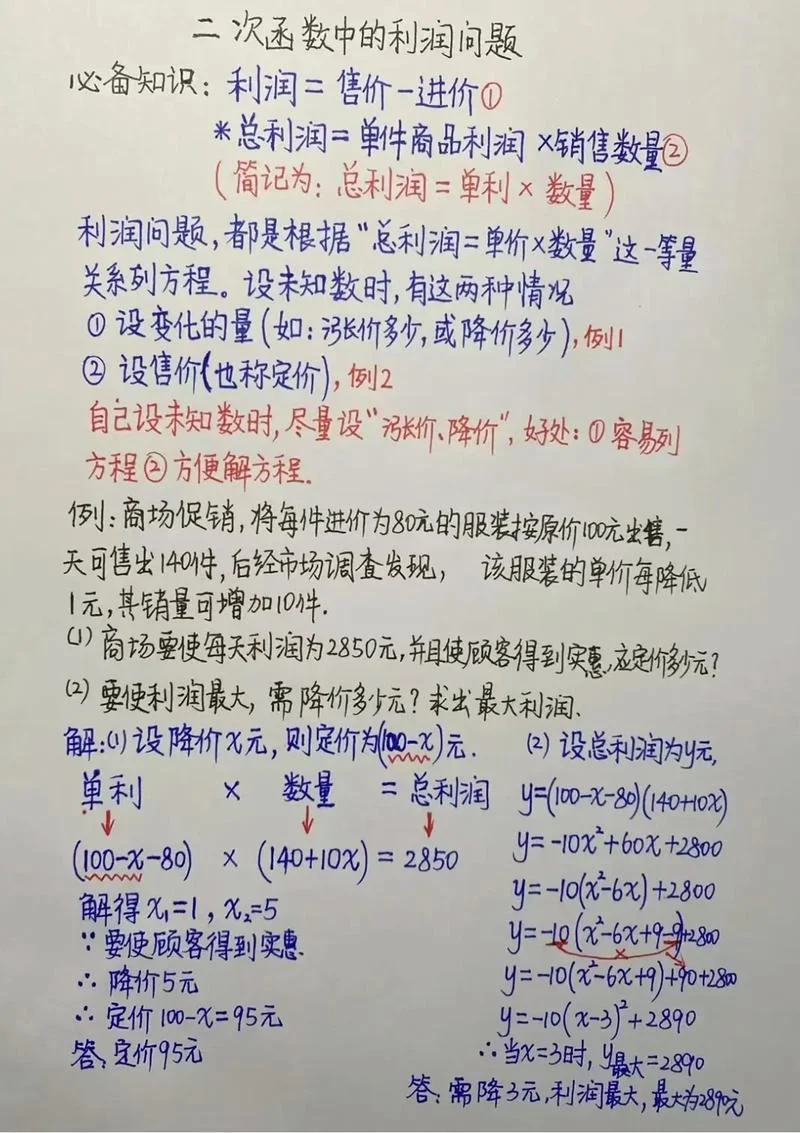 二次函数中的利润问题
必备知识：利润=售价-进价①
*总利润=单件商品利润×销售数量②
（简记为：总利润=单利×数量）
利润问题，都是根据“总利润=单价×数量”这一等量
关系列方程。设未知数时，有这两种情况
① 设变化的量(如:涨价多少,或降价多少),例1
② 设售价(也称定价),例2
自己设未知数时,尽量设“涨价、降价”,好处:①容易列
方程②方便解方程.
例:商场促销,将每件进价为80元的服装按原价100元出售,一
天可售出140件,后经市场调查发现, 该服装的单价每降低
1元,其销量可增加10件.
(1) 商场要使每天利润为2850元,并且使顾客得到实惠,应定价多少元?
(2) 要使利润最大,需降价多少元?求出最大利润.
解:(1)设降价x元,则定价为(100-x)元.
单利 × 数量 = 总利润
(100-x-80) × (140+10x) = 2850
解得 x₁=1, x₂=5
∵要使顾客得到实惠
∴ 降价5元
∴ 定价100-x=95元
答:定价95元
(2) 设总利润为y元,
y=(100-x-80)(140+10x)
y=-10x²+60x+2800
y=-10(x²-6x)+2800
y=-10(x²-6x+9-9)+2800
y=-10(x²-6x+9)+90+2800
y=-10(x-3)²+2890
∴当x=3时, y最大=2890
答:需降3元,利润最大,最大为2890元